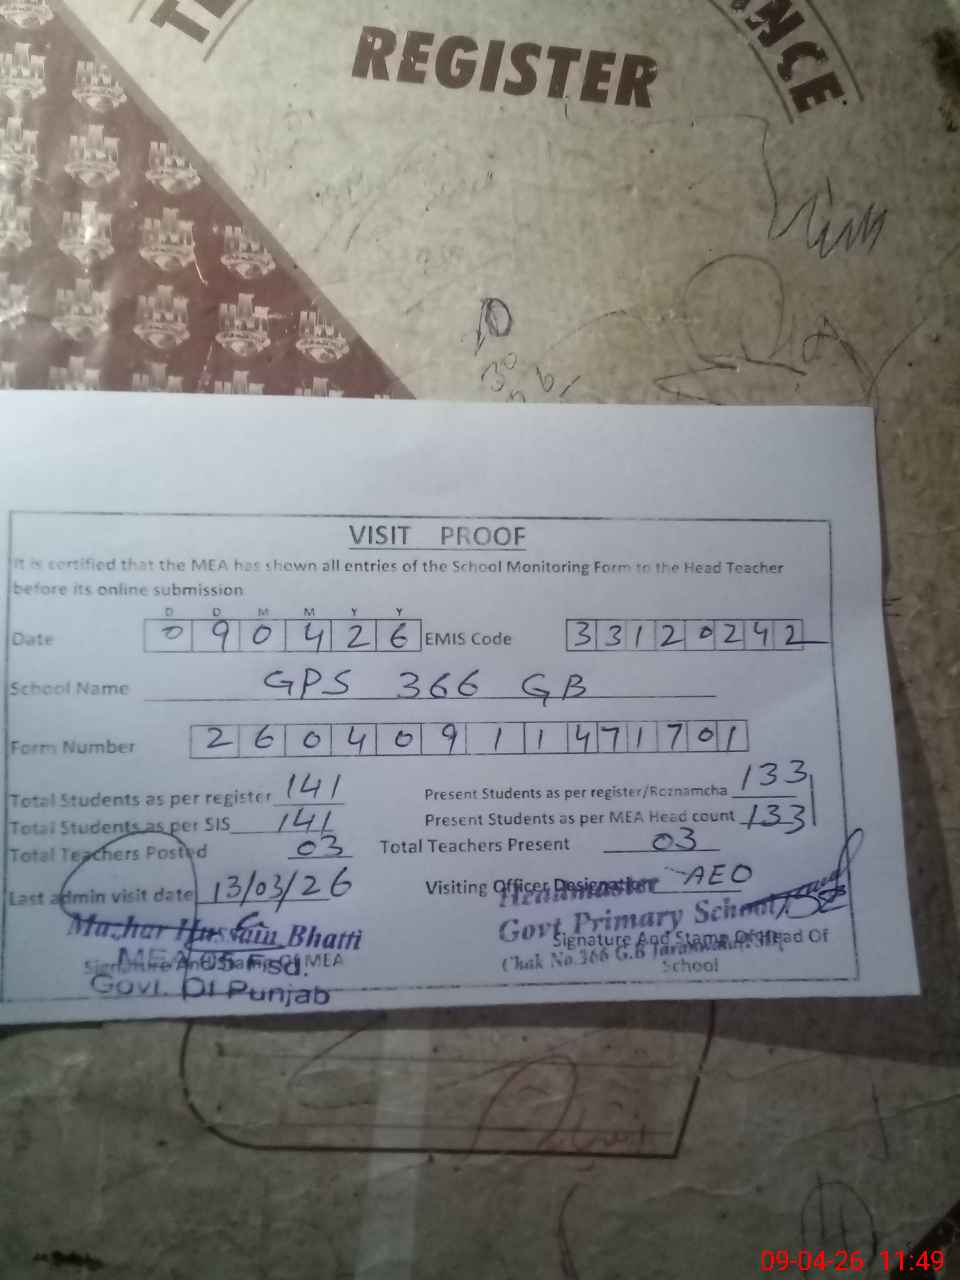 REGISTER
VISIT PROOF
It is certified that the MEA has shown all entries of the School Monitoring Form to the Head Teacher
before its online submission
D D M M Y Y
Date 0 9 0 4 2 6 EMIS Code 3 3 1 2 0 2 4 2
School Name GPS 366 GB
Form Number 2 6 0 4 0 9 1 1 4 7 1 7 0 1
Total Students as per register 141 Present Students as per register/Roznamcha 133
Total Students as per SIS 141 Present Students as per MEA Head count 133
Total Teachers Posted 03 Total Teachers Present 03
Last admin visit date 13/03/26 Visiting Officer Designation AEO
Mazhar Hussain Bhatti
Headmaster
Govt Primary School
Signature And Stamp Of MEA
Signature And Stamp Of Head Of
School
Chak No.366 G.B
MEA Fsd.
Govt. Of Punjab
09-04-26 11:49